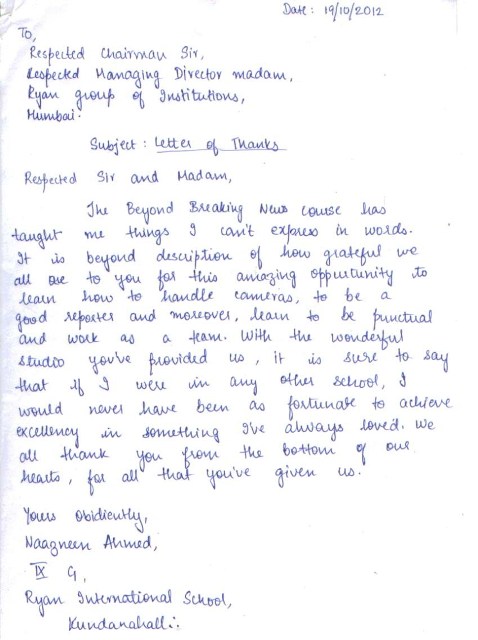 Date: 19/10/2012
To,
Respected Chairman Sir,
Respected Managing Director madam,
Ryan group of Institutions,
Mumbai.
Subject: Letter of Thanks
Respected Sir and Madam,
The Beyond Breaking News course has
taught me things I can't express in words.
It is beyond description of how grateful we
all are to you for this amazing oppurtunity to
learn how to handle cameras, to be a
good reporter and moreover, learn to be punctual
and work as a team. With the wonderful
studio you've provided us, it is sure to say
that if I were in any other school, I
would never have been as fortunate to achieve
excellency in something I've always loved. We
all thank you from the bottom of our
hearts, for all that you've given us.
Yours obidiently,
Naazneen Ahmed,
IX G,
Ryan International School,
Kundanahalli.